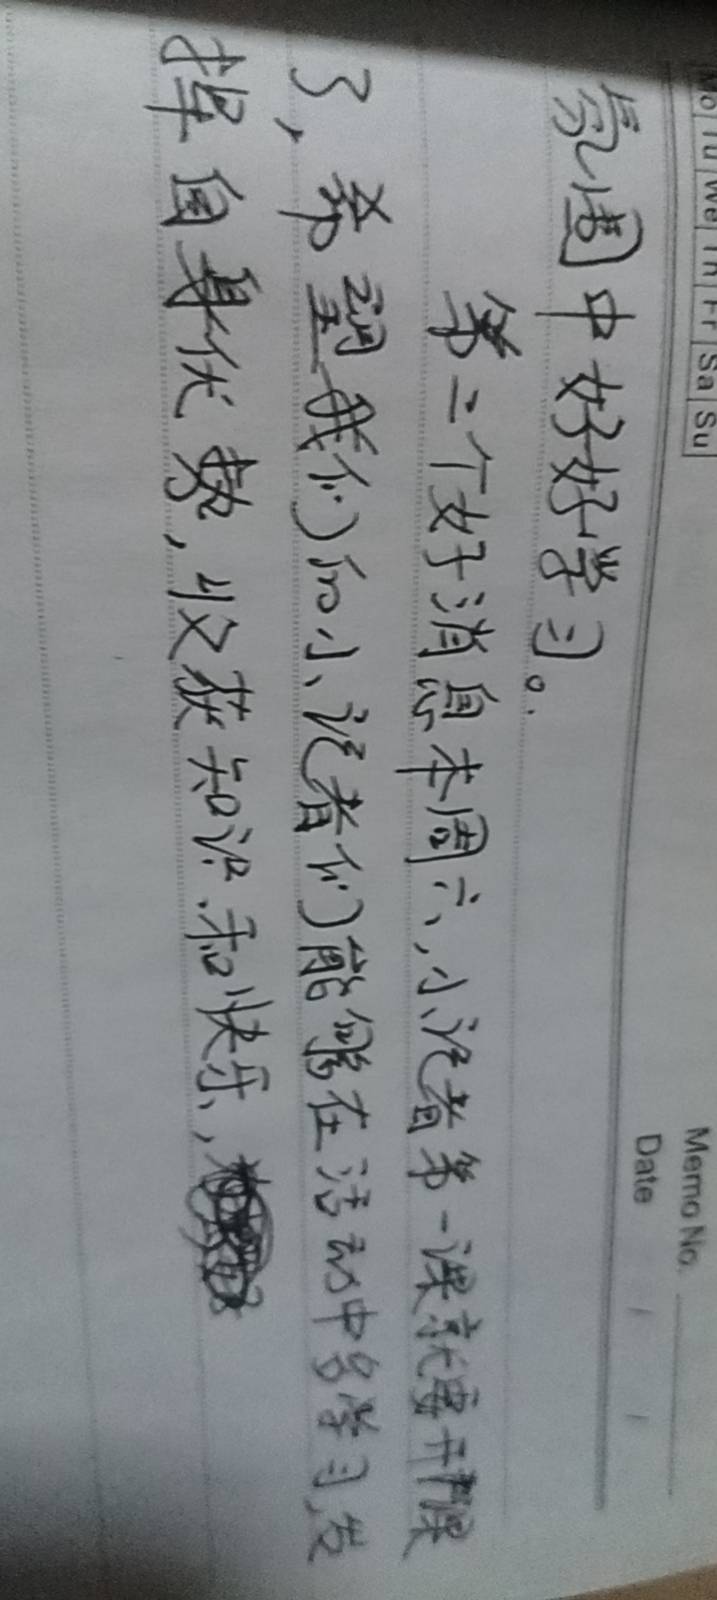 Mo Tu We Th Fr Sa Su
Memo No.
Date / /
氛围中好好学习。
第二个好消息本周六,小记者第一课就要开课
了,希望我们的小记者们能够在活动中多学习,发
挥自身优势,收获知识和快乐,